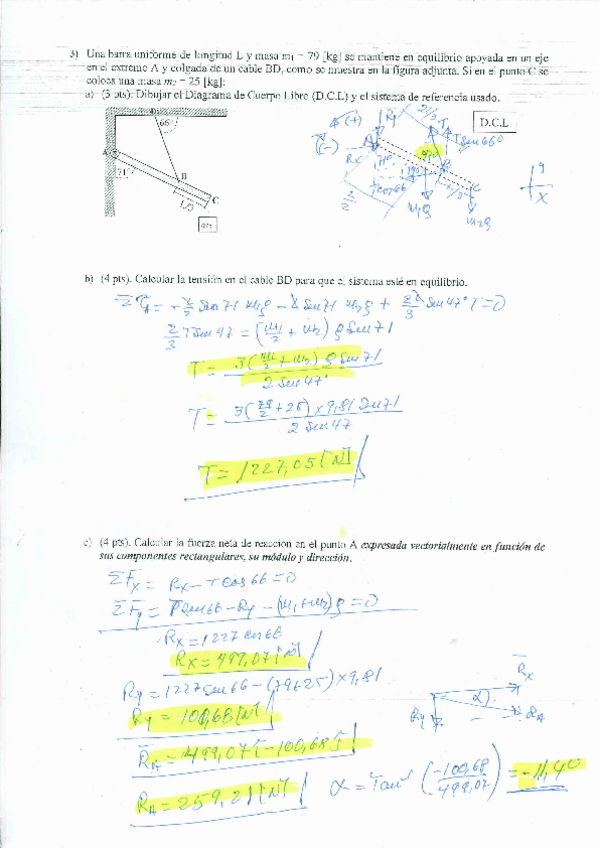 3) Una barra uniforme de longitud L y masa m₁ = 79 [kg] se mantiene en equilibrio apoyada en un eje
en el extremo A y colgada de un cable BD, como se muestra en la figura adjunta. Si en el punto C se
coloca una masa m₂ = 25 [kg]:
a) (3 pts). Dibujar el Diagrama de Cuerpo Libre (D.C.L) y el sistema de referencia usado.
D
66°
A
71°
B
C
L/3
D.C.L
(+)
(-)
Ry
Rx
2/3
T
T sen 66°
71°
T cos 66
L/2
m₁g
m₂g
C
y
x
b) (4 pts). Calcular la tensión en el cable BD para que el sistema esté en equilibrio.
Sen 71 m₁g - L Sen 71 m₂g + 2L/3 Sen 47° T = 0
2/3 T Sen 47 = (m₁/2 + m₂) g Sen 71
T = 3(m₁/2 + m₂) g Sen 71 / 2 Sen 47°
T = 3(79/2 + 25) x 9,81 Sen 71 / 2 Sen 47
T = 1227,05 [N]
c) (4 pts). Calcular la fuerza neta de reacción en el punto A expresada vectorialmente en función de
sus componentes rectangulares, su módulo y dirección.
ΣFx = Rx - T cos 66 = 0
ΣFy = T Sen 66 - Ry - (m₁+m₂)g = 0
Rx = 1227 cos 66
Rx = 499,07 [N]
Ry = 1227 sen 66 - (79+25) x 9,81
Ry = 100,68 [N]
Rx
α
Ry
RA
RA = 499,07i - 100,68j
RA = 259,21 [N]
α = Tan⁻¹ (-100,68 / 499,07) = -11,40